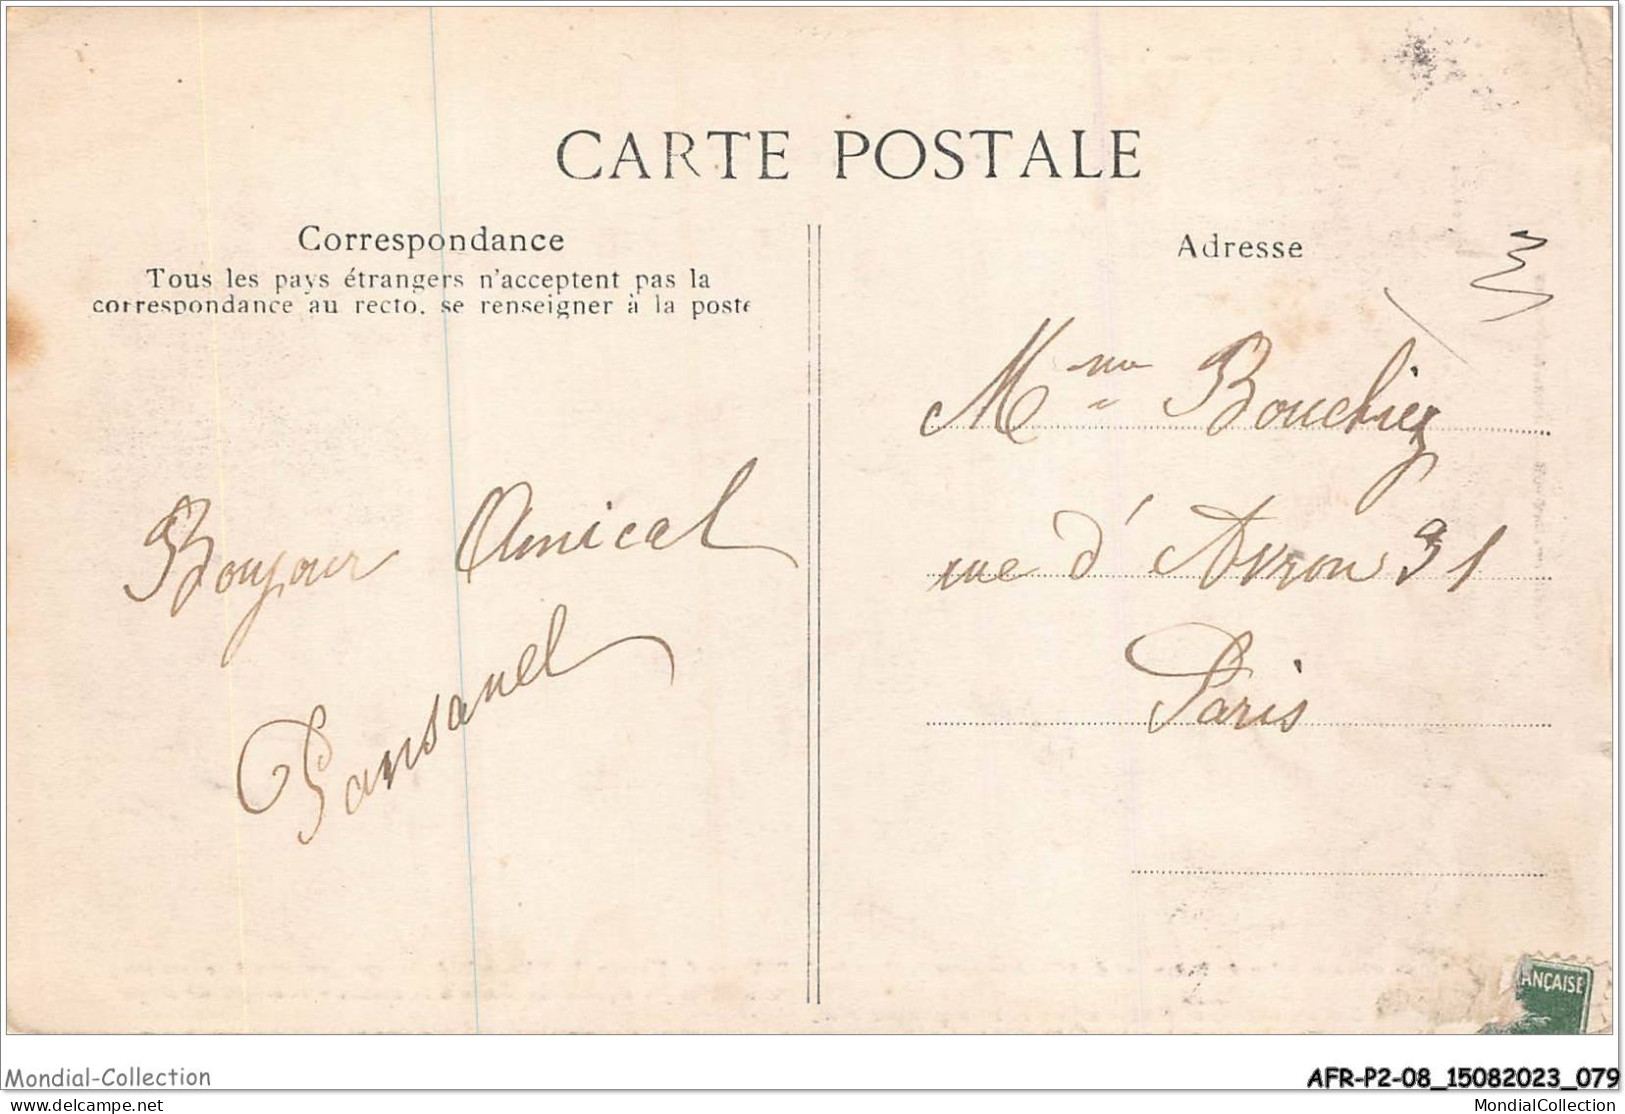 CARTE POSTALE
Correspondance
Tous les pays étrangers n'acceptent pas la
correspondance au recto, se renseigner à la poste
Bonjour Amical
Pansanel
Adresse
Mme Bouchiez
rue d'Avron 31
Paris
ANÇAISE
Mondial-Collection
AFR-P2-08_15082023_079
www.delcampe.net
MondialCollection